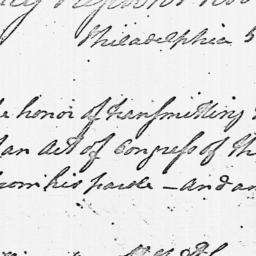 Philadelphia 5
honor of transmitting
an act of Congress of th
from his parole — and an